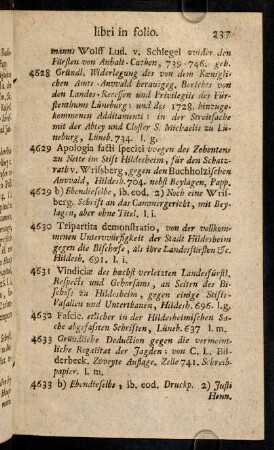 libri in folio. 237
manns Wolff Lud. v. Schlegel wider den
Fürsten von Anhalt-Cœthen, 739-746. geb.
4628 Gründl. Widerlegung des von dem Kœniglichen
Amts-Anwald herausgeg. Berichts von
den Landes-Recessen und Privilegiis des Fürstenthums
Lüneburg; und des 1728. hinzugekommenen
Additamenti: in der Streitsache
mit der Abtey und Closter S. Michaelis zu Lüneburg,
Lüneb. 734. l. g.
4629 Apologia facti speciei wegen des Zehentens
zu Nette im Stift Hildesheim, für den Schatzrath
v. Wrisberg, gegen den Buchholzischen
Anwald, Hildesh. 704. nebst Beylagen, Papp.
4629 b) Ebendieselbe, ib. eod. 2) Noch eine Wrisberg.
Schrift an das Cammergericht, mit Beylagen,
aber ohne Titel. l. i.
4630 Tripartita demonstratio, von der vollkommenen
Unterwürfigkeit der Stadt Hildesheim
gegen die Bischofe, als ihre Landesfürsten &c.
Hildesh. 691. l. i.
4631 Vindiciæ des hœchst verletzten Landesfürstl.
Respects und Gehorsams, an Seiten des Bischofs
zu Hildesheim, gegen einige Stifts-
Vasallen und Unterthanen, Hildesh. 696. l. g.
4632 Fascic. etlicher in der Hildesheimischen Sache
abgefasten Schriften, Lüneb. 637 l. m.
4633 Gründliche Deduction gegen die vermeintliche
Regalitæt der Jagden: von C. L. Bilderbeck.
Zweyte Auflage. Zelle 741. Schreibpapier.
l. m.
4633 b) Ebendieselbe, ib. eod. Druckp. 2) Justi
Henn.